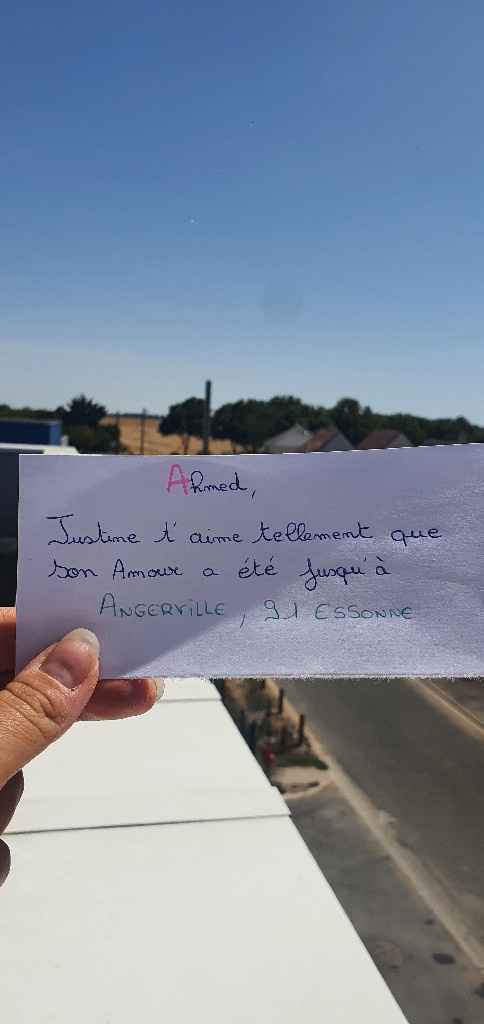 Ahmed,
Justine t'aime tellement que
son Amour a été jusqu'à
ANGERVILLE, 91 ESSONNE